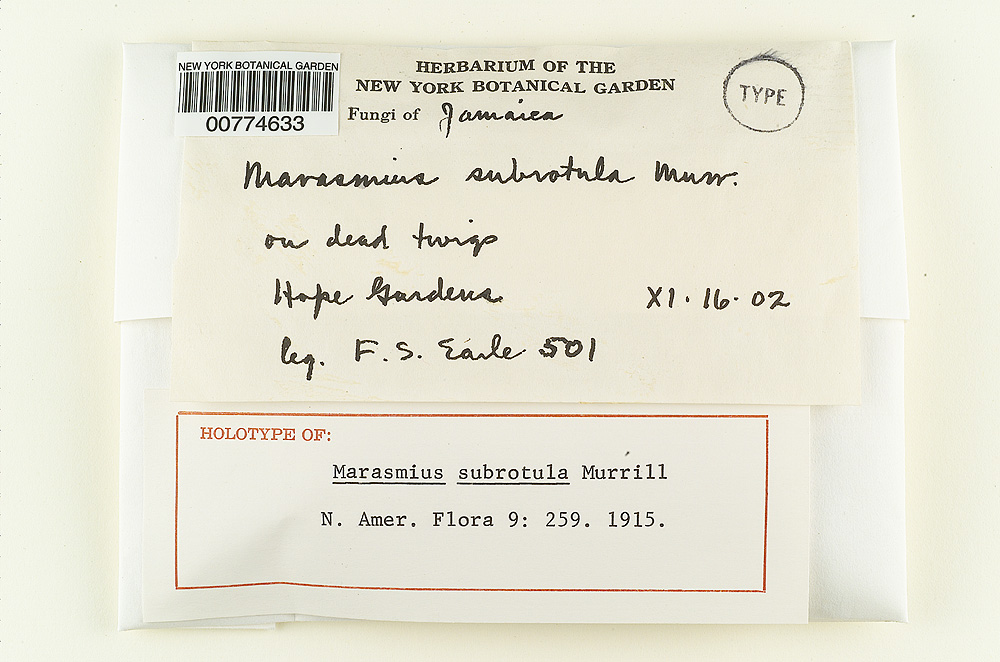 NEW YORK BOTANICAL GARDEN
00774633
HERBARIUM OF THE
NEW YORK BOTANICAL GARDEN
Fungi of Jamaica
TYPE
Marasmius subrotula Murr.
on dead twigs
Hope Gardens XI. 16. 02
leg. F. S. Earle 501
HOLOTYPE OF:
Marasmius subrotula Murrill
N. Amer. Flora 9: 259. 1915.